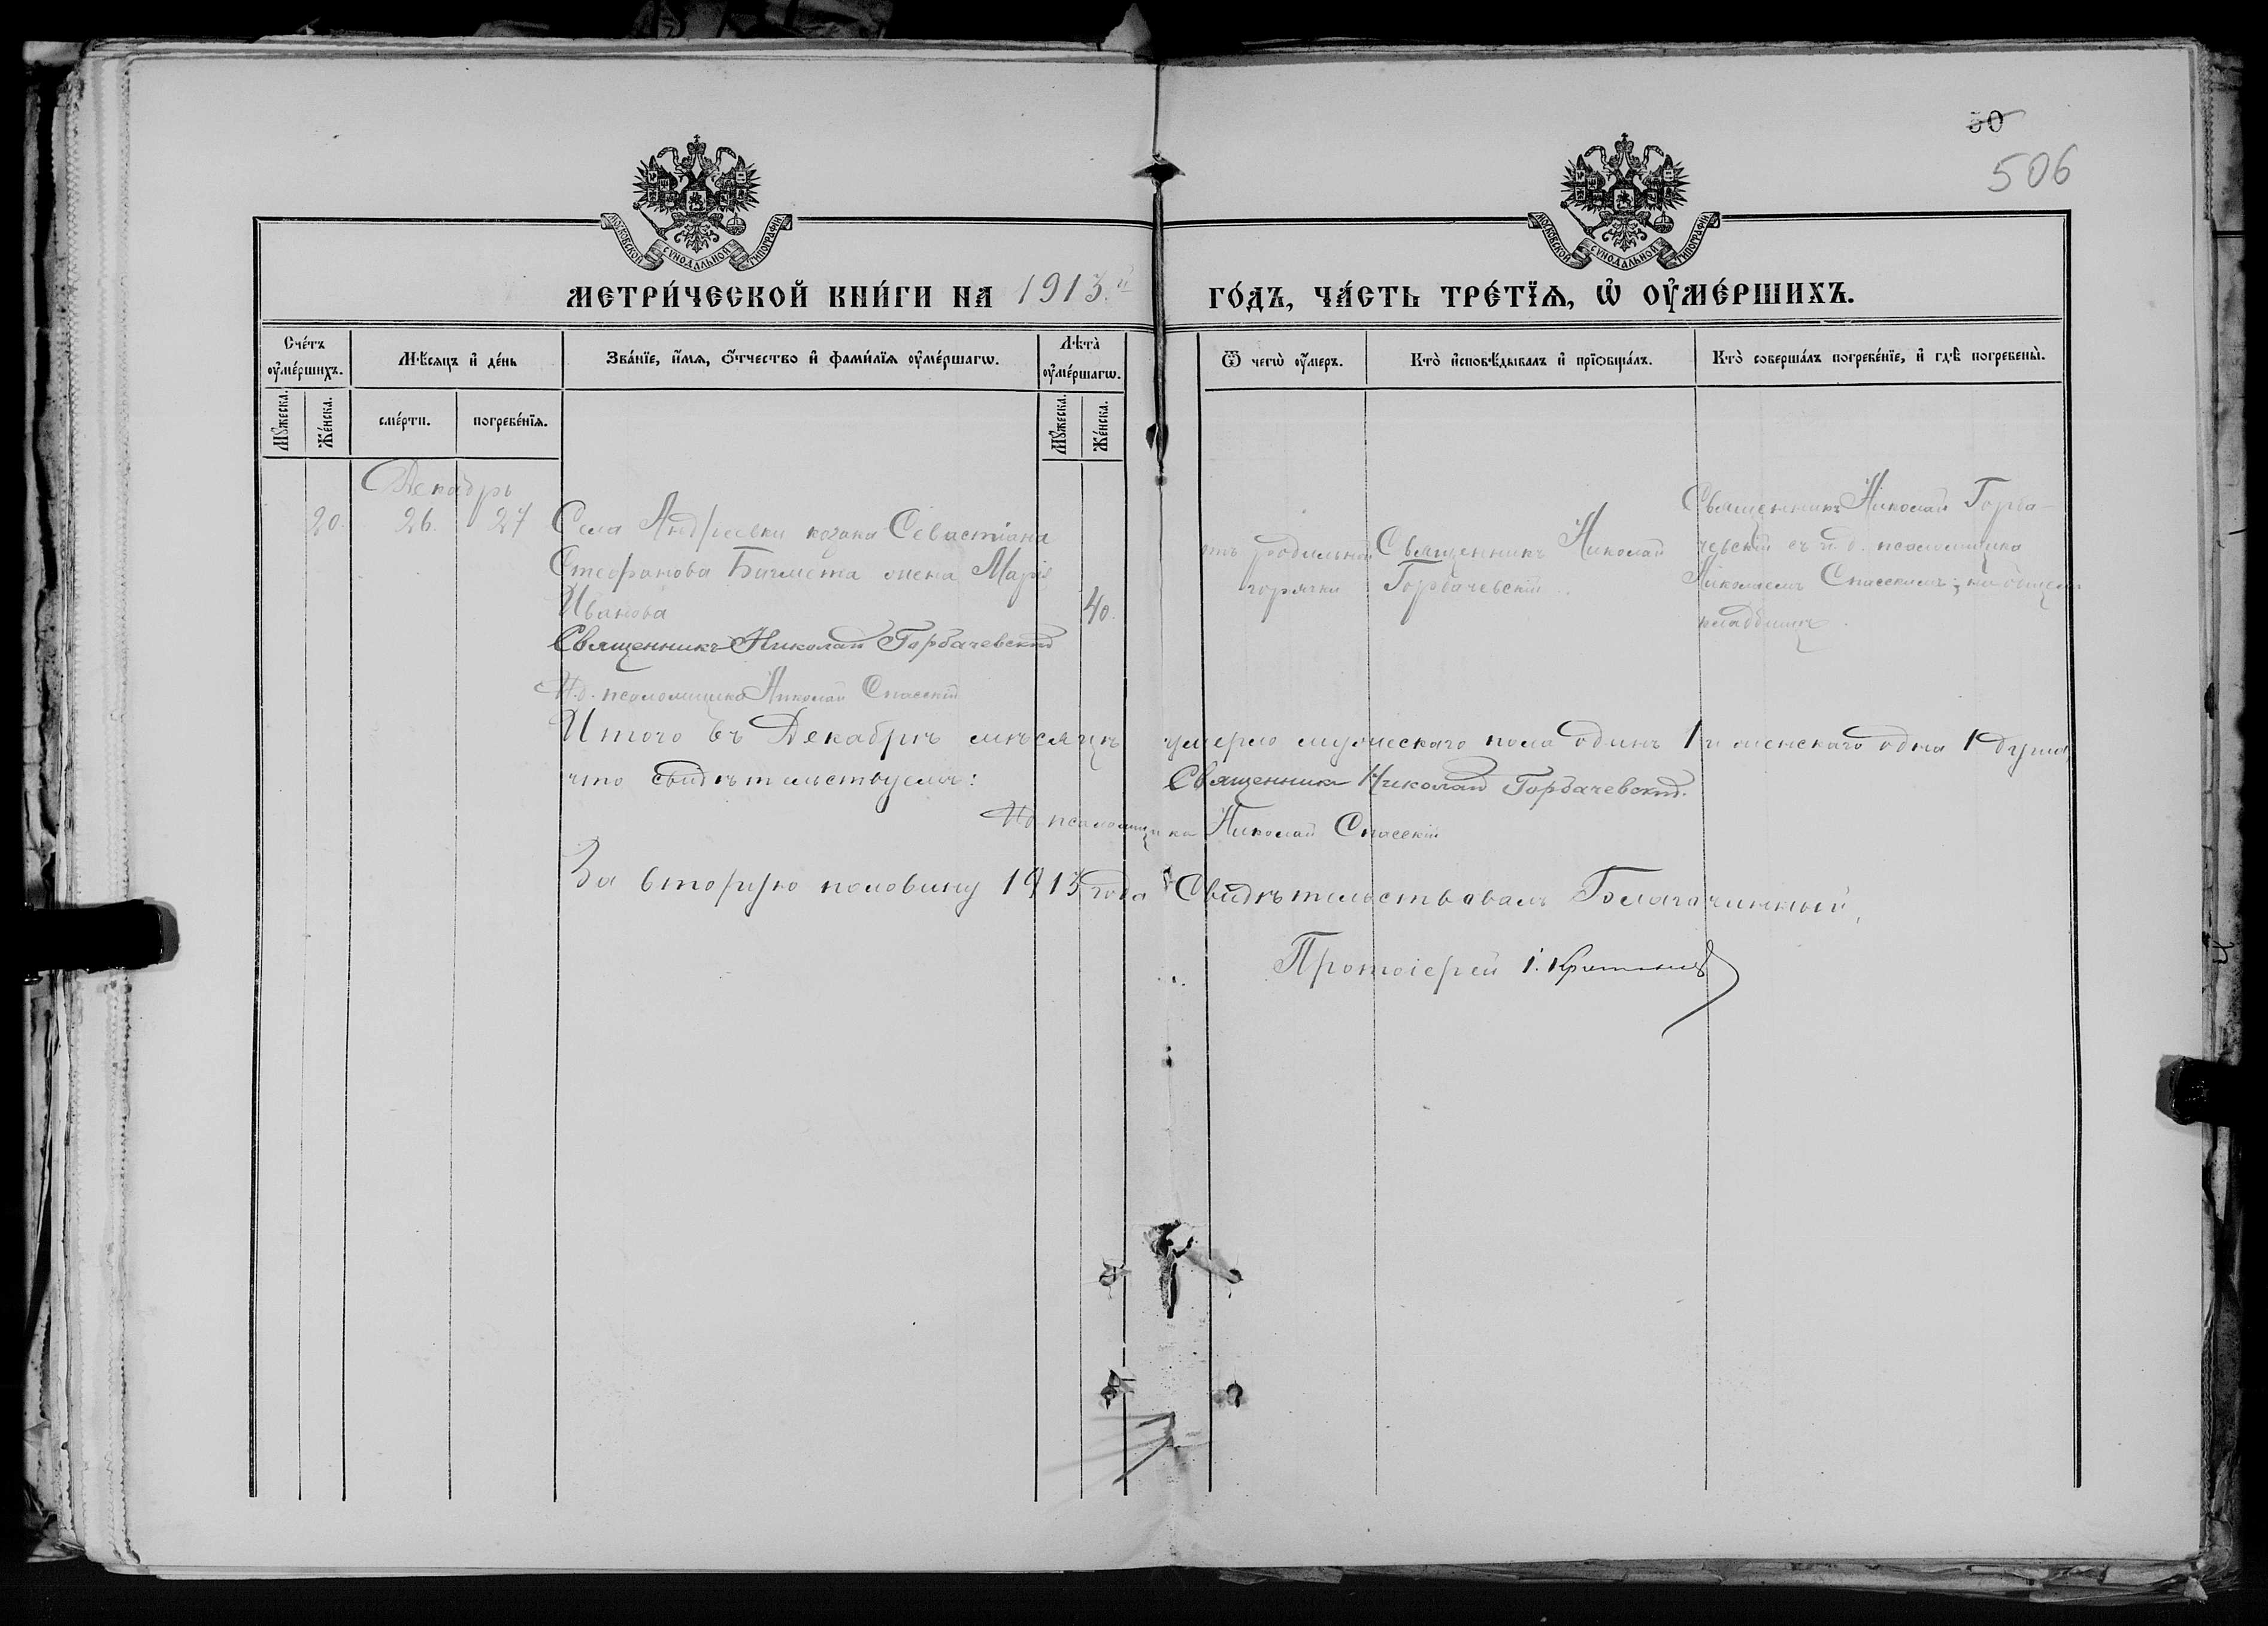 50
506
МОСКОВСКОЙ СѴНОДАЛЬНОЙ ТИПОГРАФІИ
МОСКОВСКОЙ СѴНОДАЛЬНОЙ ТИПОГРАФІИ
МЕТРИ́ЧЕСКОЙ КНИ́ГИ НА 1913.й ГО́ДЪ, ЧА́СТЬ ТРЕ́ТЇѦ, Ѡ҆ ОУ҆МЕ́РШИХЪ.
Сче́тъ оу҆ме́ршихъ.
Мѣ́сяцъ и҆ де́нь
Зва́нїе, и҆́мѧ, ѻ҆́тчество и҆ фами́лїѧ оу҆ме́ршагѡ.
Лѣта̀ оу҆ме́ршагѡ.
Ѿ чегѡ̀ оу҆́меръ.
Кто̀ и҆сповѣ́дывалъ и҆ прїѡбща́лъ.
Кто̀ соверша́лъ погребе́нїе, и҆ гдѣ̀ погребены̀.
Мꙋ́жеска.
Же́нска.
сме́рти.
погребе́нїѧ.
Мꙋ́жеска.
Же́нска.
Декабрь
20. 26. 27
Села Андреевки козака Севастіана
Стефанова жена Марія
Иванова 40.
отъ родильной
горячки
Священникъ Николай
Горбачевскій.
Священникъ Николай Горба-
чевскій съ и. д. псаломщика
Николаемъ Спасскимъ; на общем
кладбищѣ.
Священникъ Николай Горбачевскій
И.д. псаломщика Николай Спасскій
Итого въ Декабрѣ мѣсяцѣ умерло мужескаго пола одинъ 1 и женскаго одна 1 душа,
что свидѣтельствуемъ: Священникъ Николай Горбачевскій.
И.д. псаломщика Николай Спасскій
За вторую половину 1913 года Свидѣтельствовалъ Благочинный,
Протоіерей І.